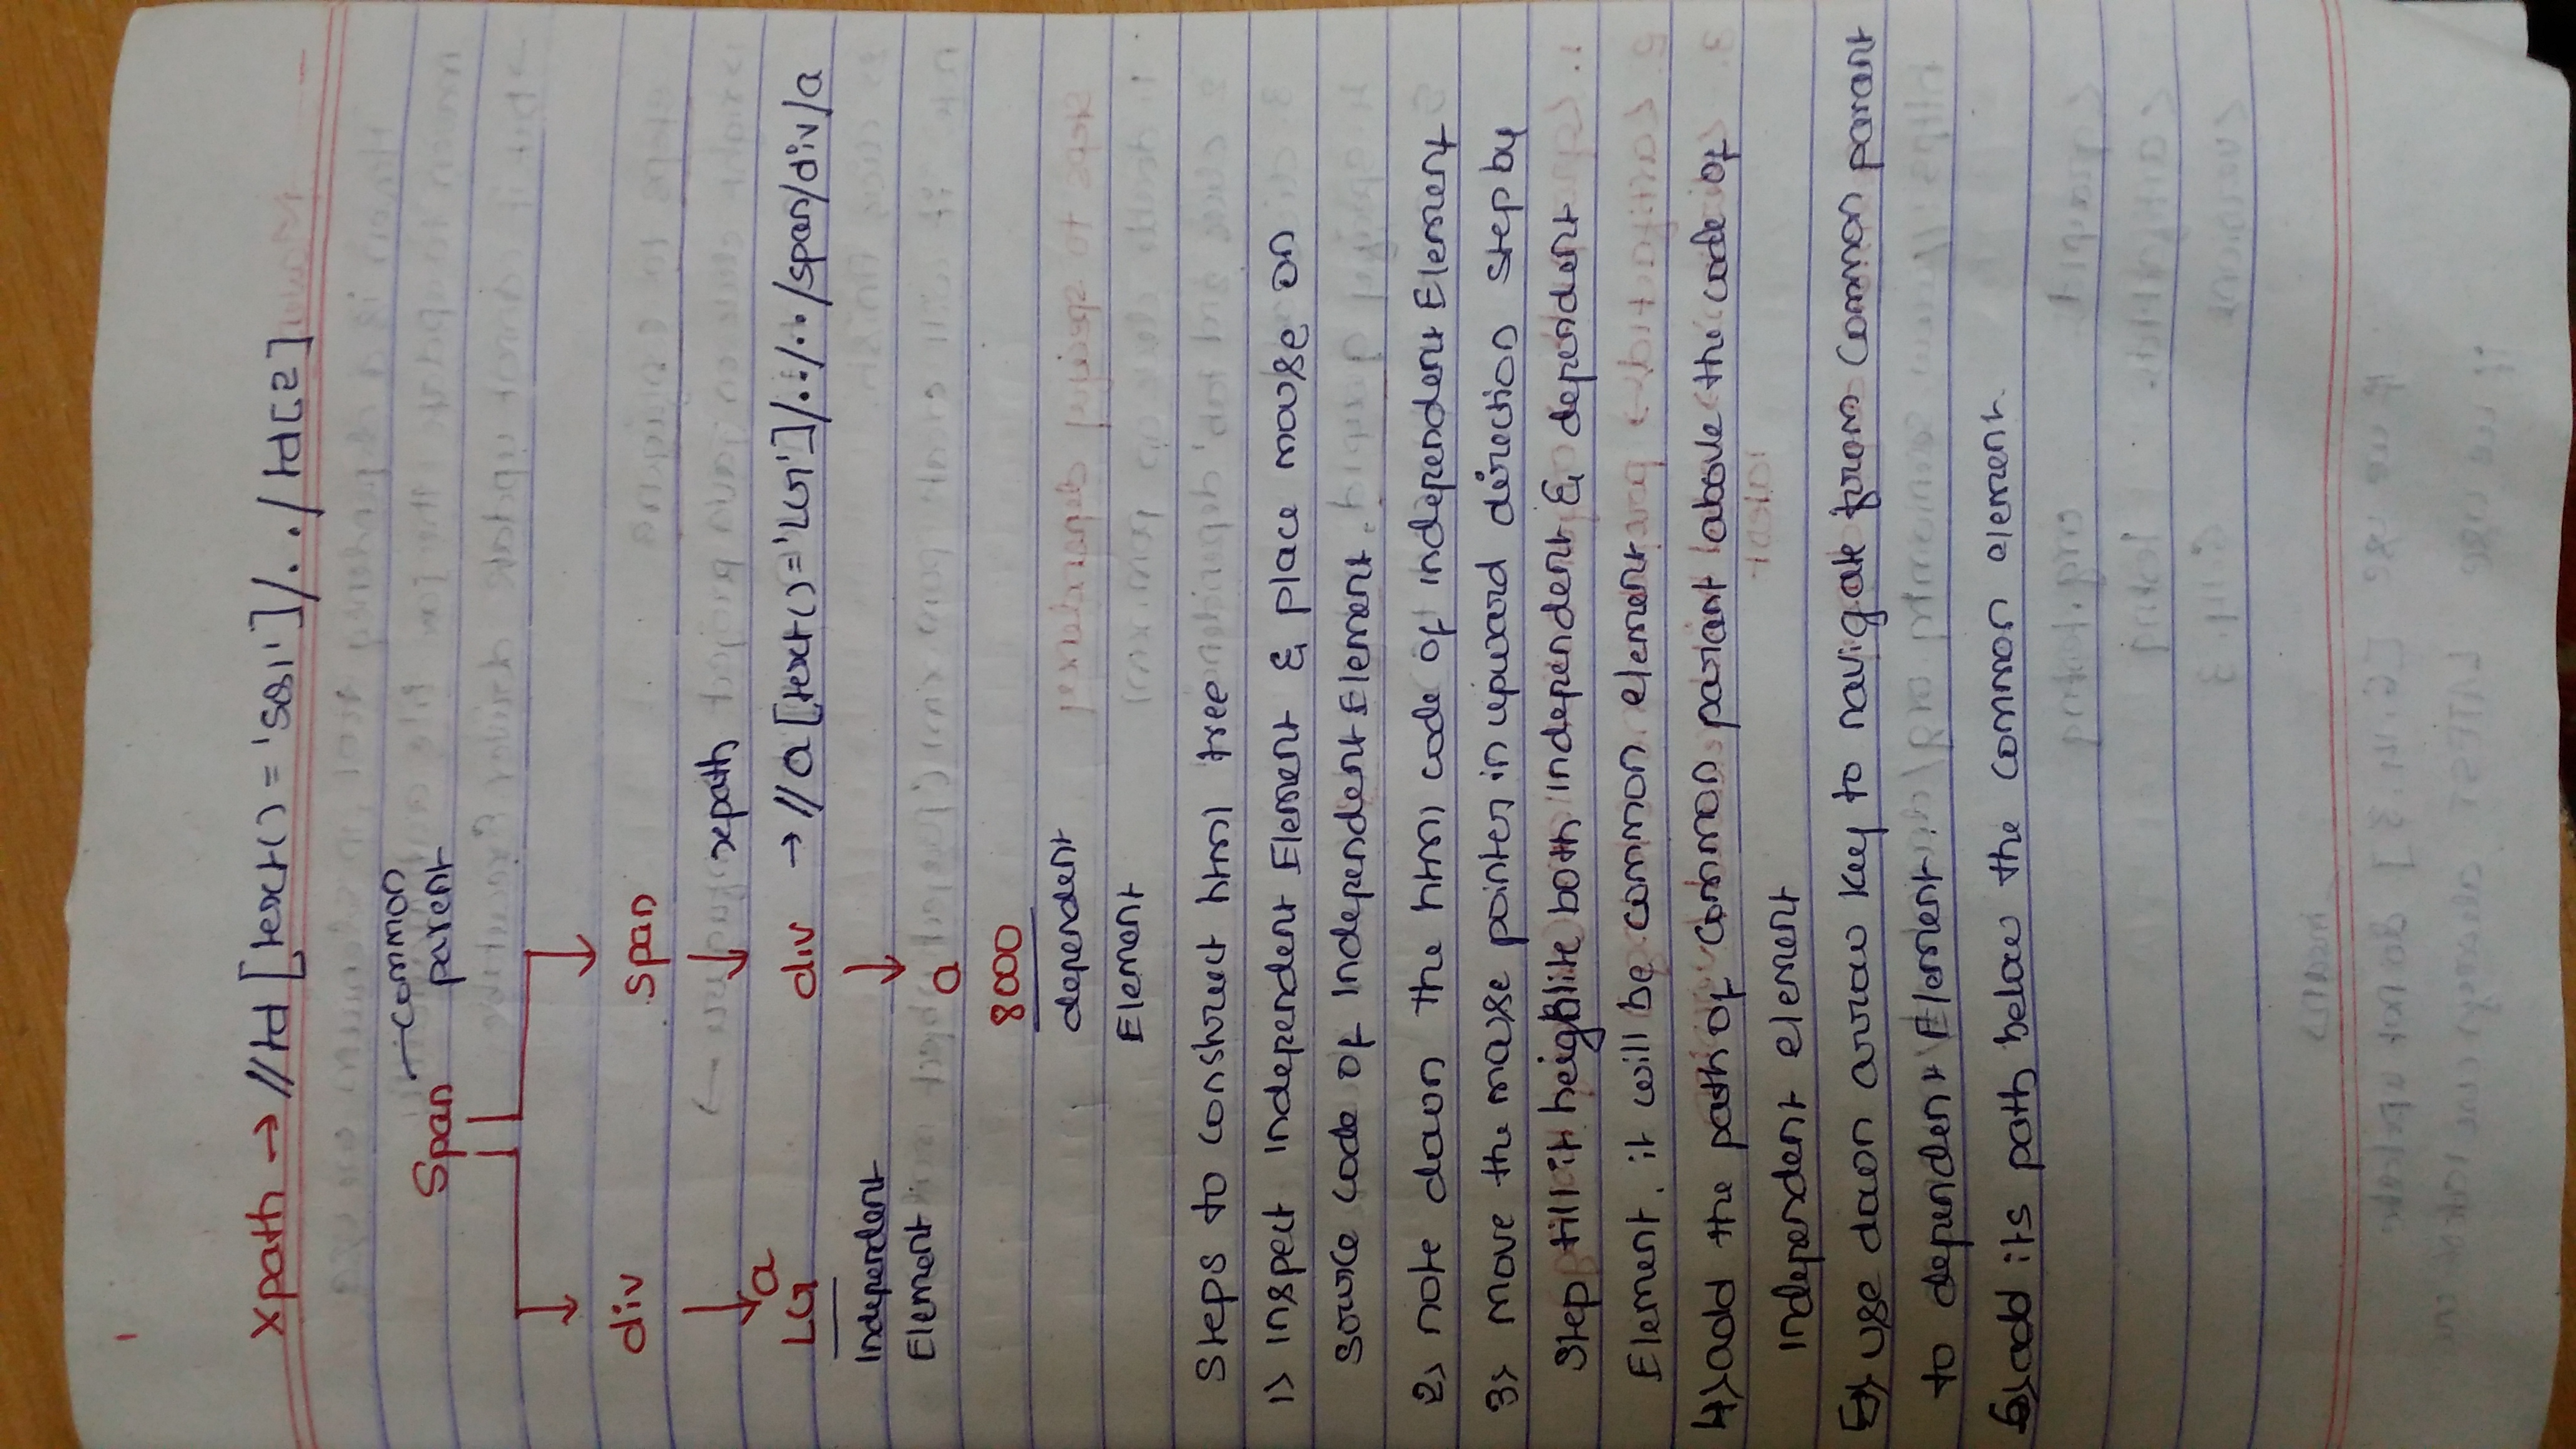 xpath → //td[text()='SQl']/../td[2]
Span – common
parent
div span
xpath
a
LG div → //a[text()='LG']/../../span/div/a
Independent
Element a
8000
dependent
Element
Steps to construct html tree
1> Inspect Independent Element & place mouse on
source code of Independent Element.
2> note down the html code of independent Element
3> Move the mouse pointer in upward direction step by
step till it heighlite both independent & dependent
Element. it will be common element
4> add the path of common parant above the code of
independent element
5> use down arrow key to navigate from common parant
to dependent Element.
6> add its path below the common element.